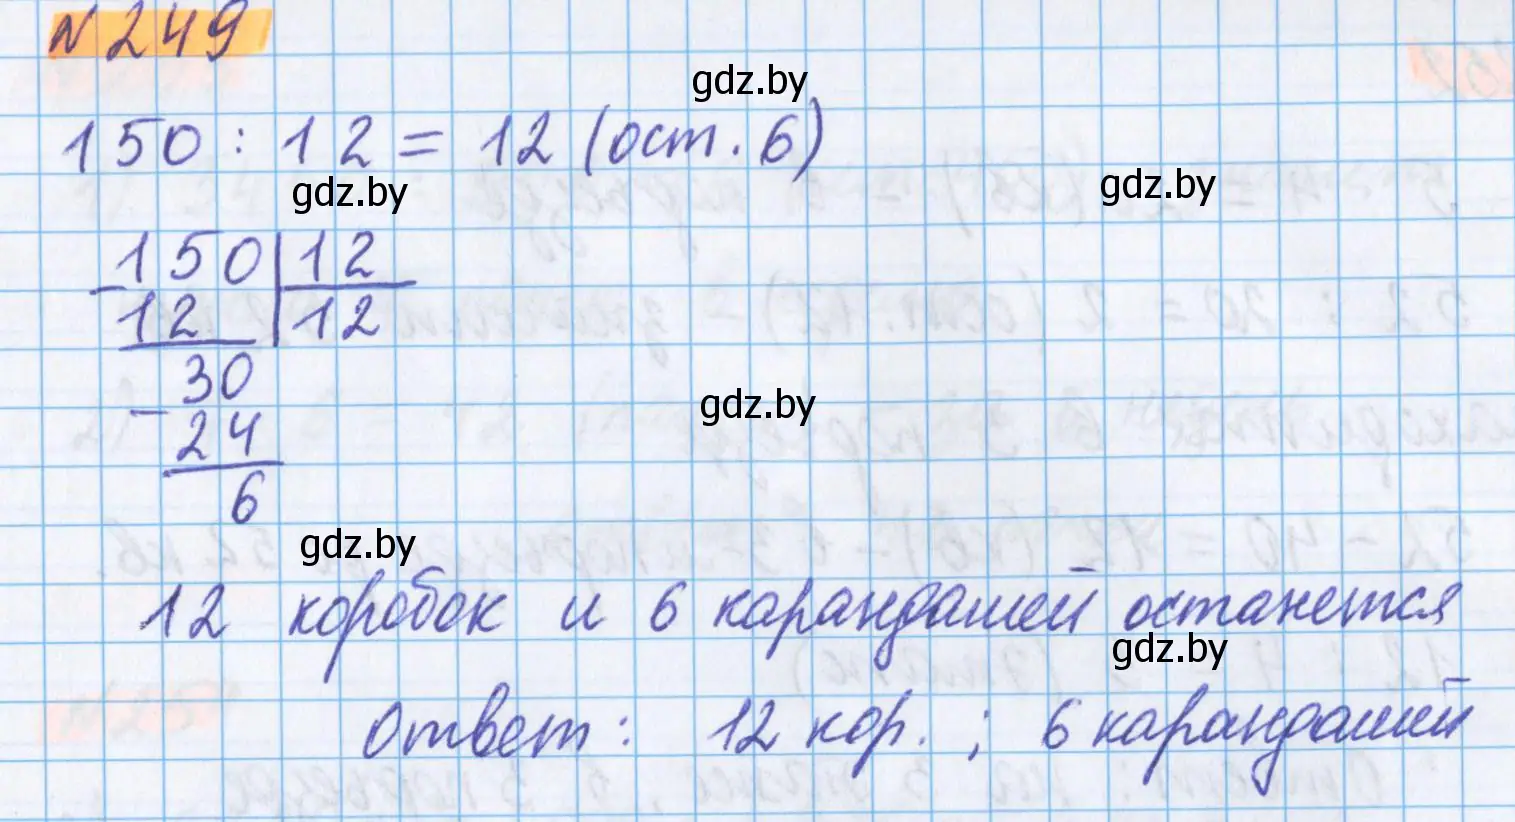 № 249
gdz.by
150 : 12 = 12 (ост. 6)
gdz.by gdz.by
- 150 | 12
12 | 12
30
- 24
gdz.by
6
gdz.by
12 коробок и 6 карандашей останется
gdz.by
Ответ: 12 кор. ; 6 карандашей